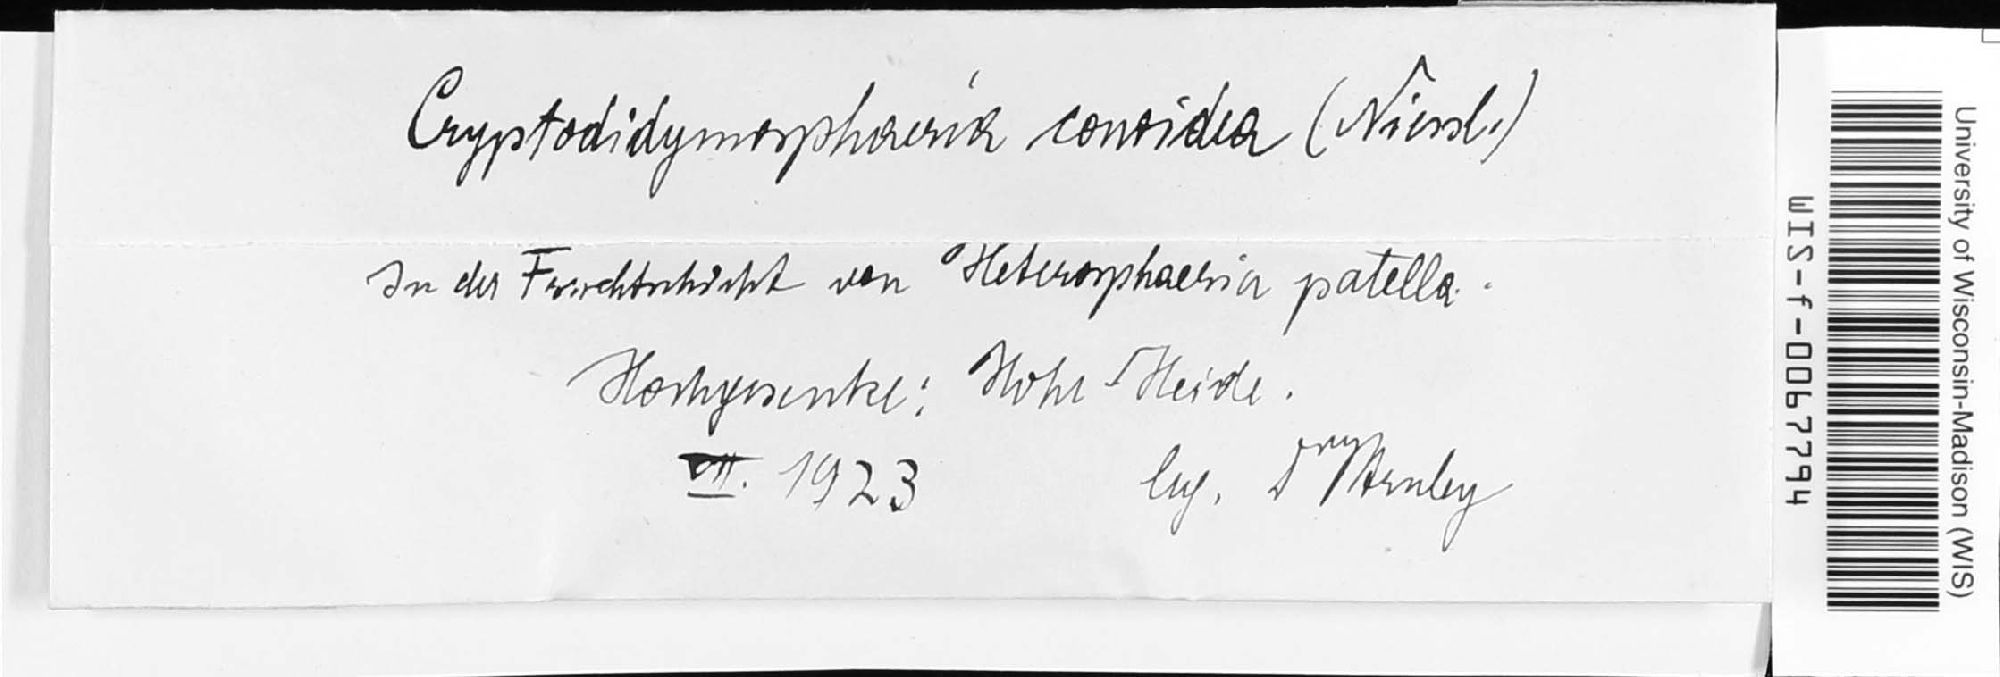 Cryptodidymosphaeria conoidea (Niessl.)
In der Fruchtschicht von Heterosphaeria patella.
Hochgesenke: Hohe Heide.
VII. 1923 leg. Dr
WIS-f-0067794
University of Wisconsin-Madison (WIS)